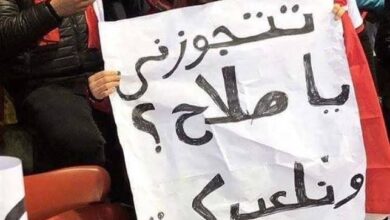 تتجوزني
يا صلاح؟
ونلعب